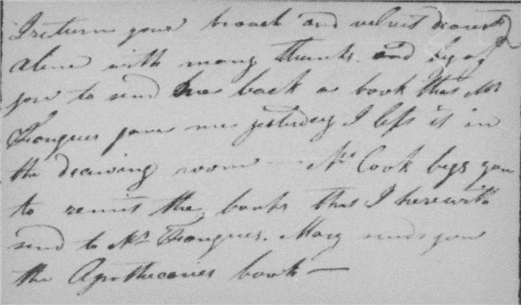 I return your broach and velvet
alone with many thanks. and beg of
you to send me back a book that Mr
gave me yesterday I left it in
the drawing room — Mr Cook begs you
to remit the books that I herewith
send to Mr Mary sends you
the Apothecaries book —